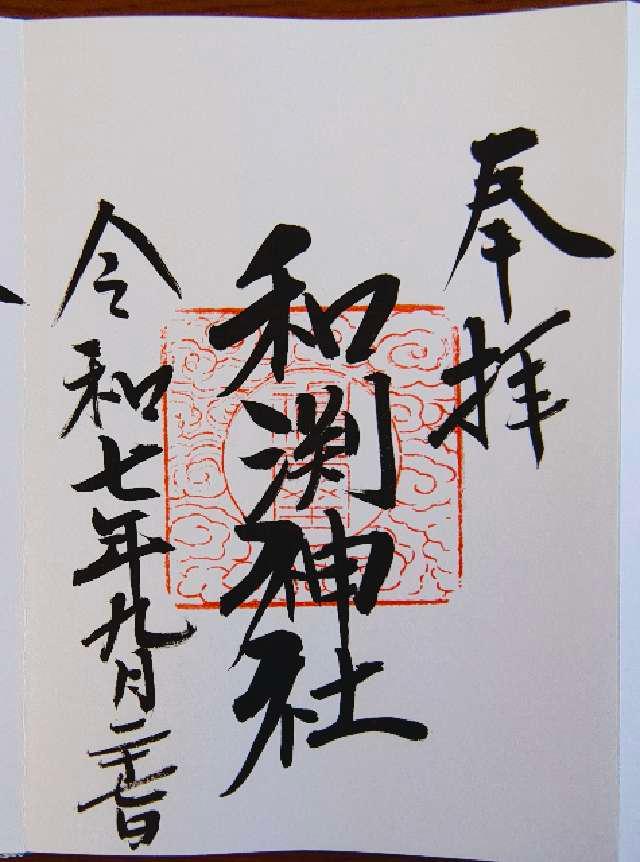 奉拝
和渕神社
令和七年九月二十七日